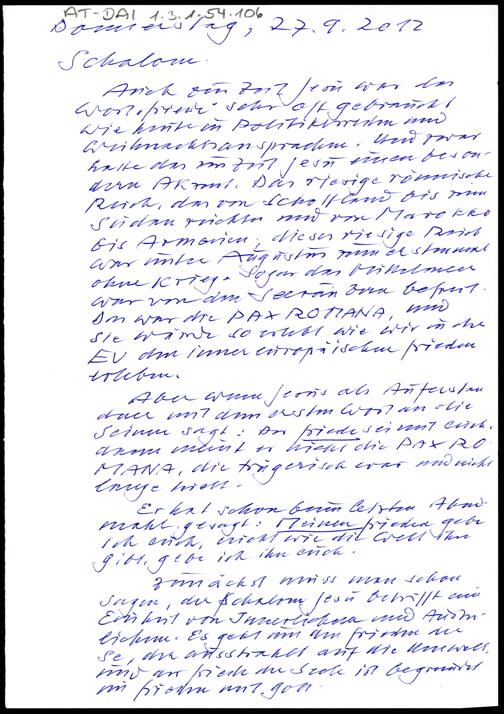 AT-DAI 1.3.1.54.106
Donnerstag, 27.9.2012
Schalom.
Auch zur Zeit Jesu war das
Wort „Friede" sehr oft gebraucht
wie heute in Politikerreden und
Weihnachtsansprachen. Und zwar
hatte das zur Zeit Jesu einen beson-
dern Akzent. Das riesige römische
Reich, das von Schottland bis zum
Sudan reichte und von Marokko
bis Armenien, dieses riesige Reich
war unter Augustus nun erstmal
ohne Krieg. Sogar das Mittelmeer
war von den Seeräubern befreit.
Das war die PAX ROMANA, und
sie wurde so erlebt wie wir in der
EU den innereuropäischen Frieden
erleben.
Aber wenn Jesus als Auferstan
dener mit dem ersten Wort an die
Seinen sagt: Der Friede sei mit euch.
dann meint er nicht die PAX RO
MANA, die trügerisch war und nicht
lange hielt.
Er hat schon beim letzten Abend
mahl gesagt: Meinen Frieden gebe
ich euch, nicht wie die Welt ihn
gibt, gebe ich ihn euch.
Zunächst muss man schon
sagen, der Schalom Jesu betrifft eine
Einheit von Innerlichem und Äußer-
lichem. Es geht um den Frieden der
Se, der ausstrahlt auf die Umwelt,
und der Friede der Seele ist begründet
im Frieden mit Gott.